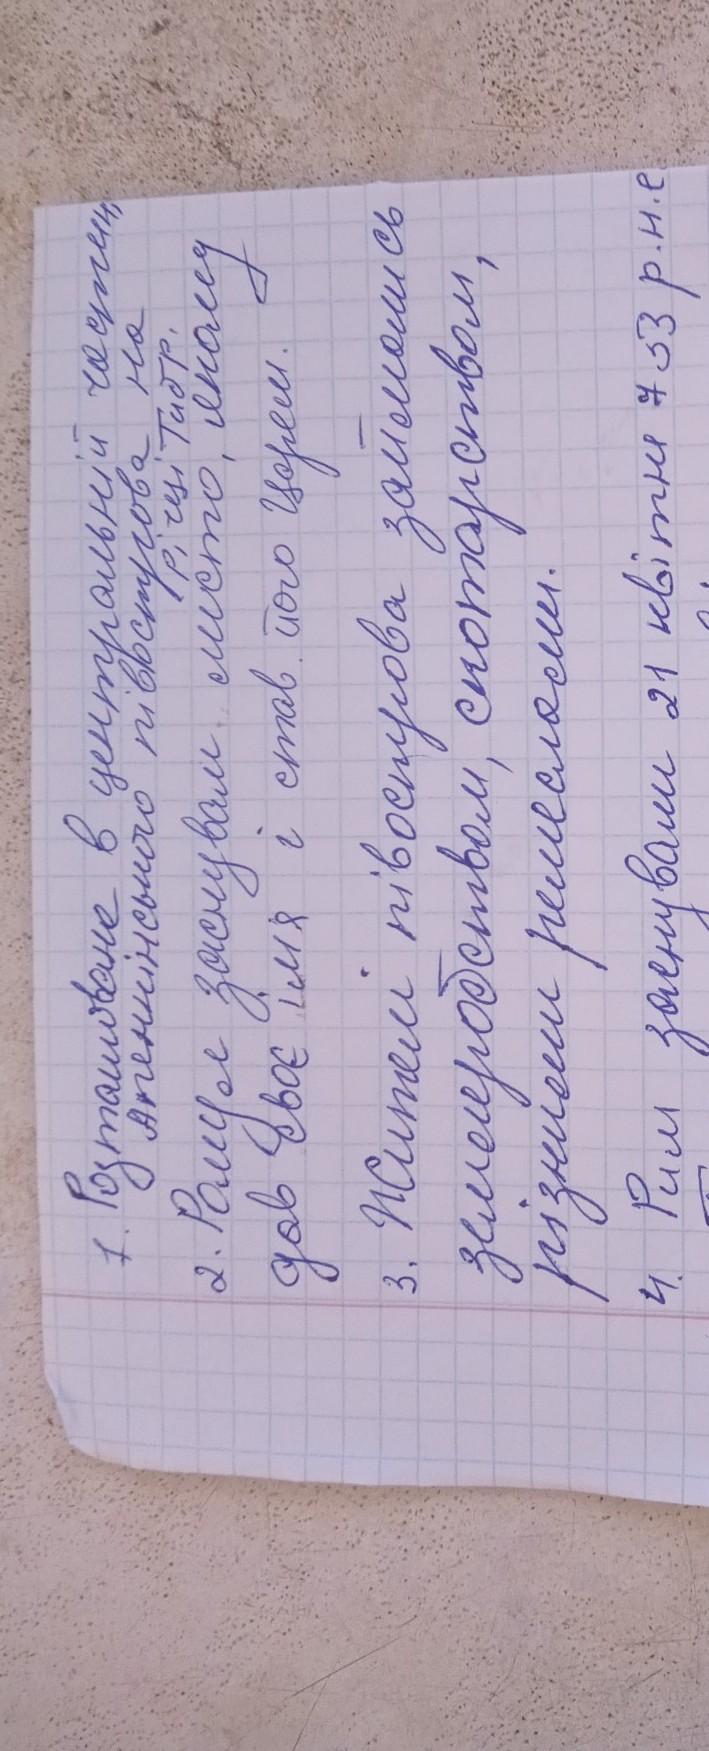 1. Розташоване в центральній частині
Апеннінського півострова на
річці Тибр.
2. Ромул заснував місто, якому
дав своє імя і став його царем.
3. Жителі півострова займались
землеробством, скотарством,
різними ремеслами.
4. Рим заснували 21 квітня 753 р.н.е